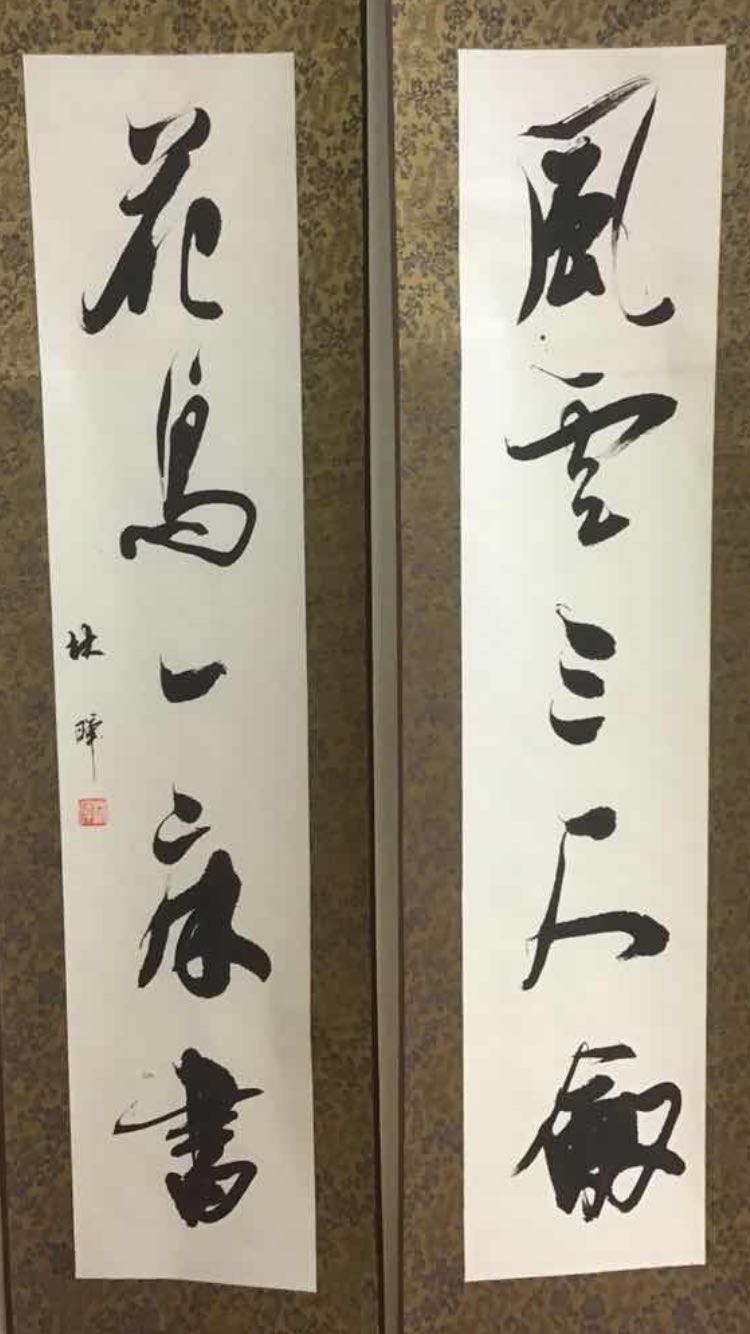 風雲三尺劍
花鳥一床書
林暐